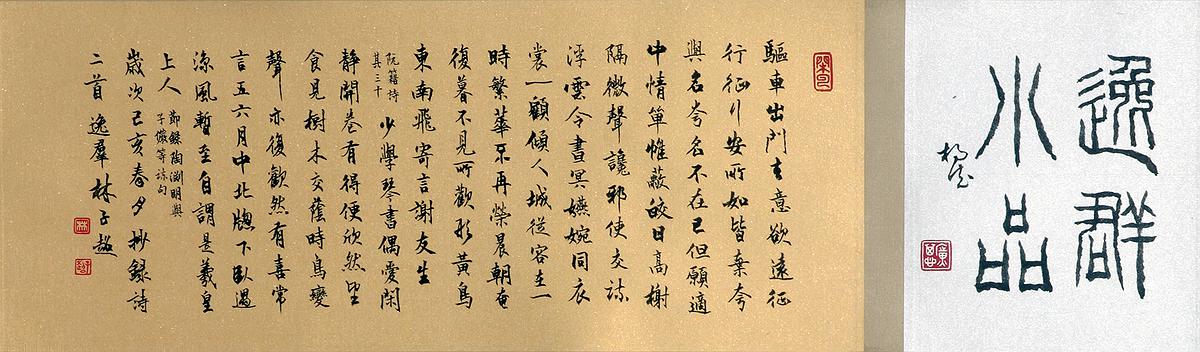 逸群
小品
驅車出門去意欲遠征
行征行安所如背棄夸
與名夸名不在己但願適
中情單帷蔽皎日高榭
隔微聲讒邪使交疏
浮雲令晝冥嬿婉同衣
裳一顧傾人城從容在一
時繁華不再榮晨朝奄
復暮不見所歡形黃鳥
東南飛寄言謝友生
阮籍詩
其三十
少學琴書偶愛閑
靜開卷有得便欣然忘
食見樹木交蔭時鳥變
聲亦復歡然有喜常
言五六月中北牕下臥遇
涼風暫至自謂是羲皇
上人
節錄陶淵明與
子儼等疏句
歲次己亥春夕抄錄詩
二首逸羣林子超
林